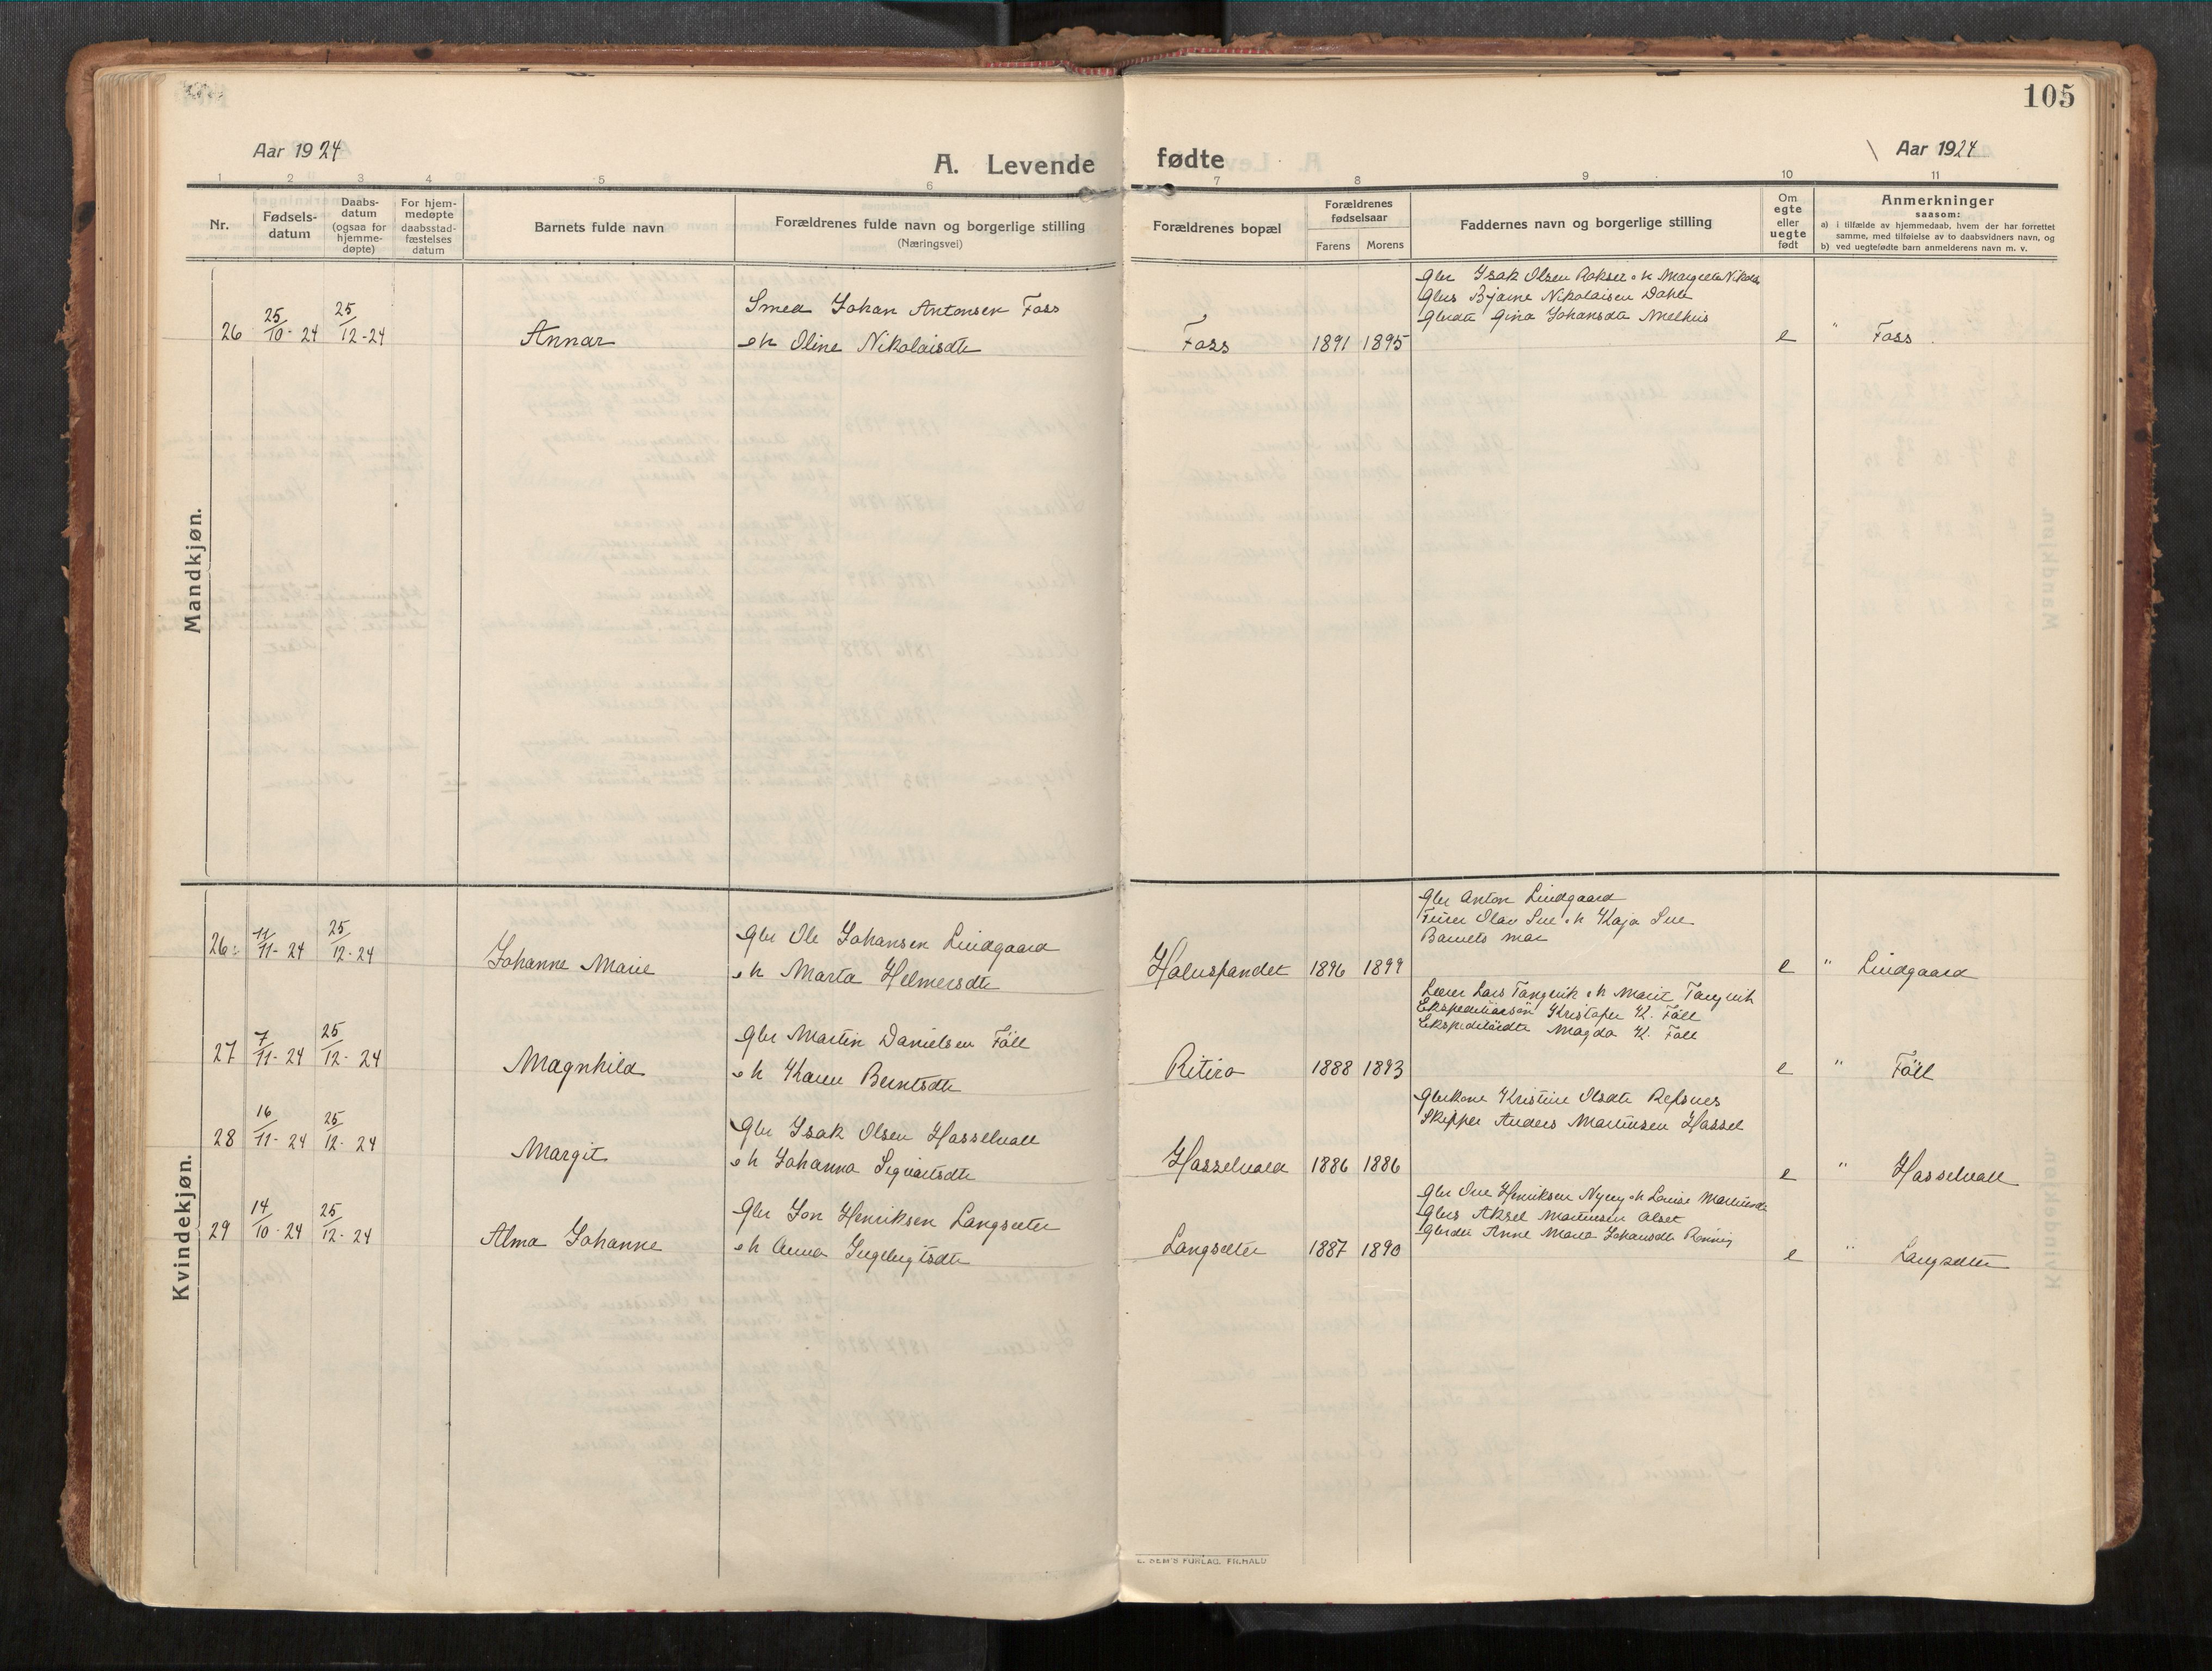 105
Aar 1924
A. Levende fødte
Aar 1924
1 2 3 4 5 6 7 8 9 10 11
Nr.
Fødsels-
datum
Daabs-
datum
(ogsaa for
hjemme-
døpte)
For hjem-
medøpte
daabsstad-
fæstelses
datum
Barnets fulde navn
Forældrenes fulde navn og borgerlige stilling
(Næringsvei)
Forældrenes bopæl
Forældrenes
fødselsaar
Farens Morens
Faddernes navn og borgerlige stilling
Om
egte
eller
uegte
født
Anmerkninger
saasom:
a) i tilfælde av hjemmedaab, hvem der har forrettet
samme, med tilføielse av to daabsvidners navn, og
b) ved uegtefødte barn anmelderens navn m. v.
Mandkjøn.
26 25/10-24 25/12-24 Annar
Smed Johan Antonsen Foss
o h Oline Nikolaisdtr
Foss 1891 1895
Gbr Isak Olsen o h Margrete Nikols
Gbrs Bjarne Nikolaisen Dahle
Gbrdtr Gina Johansdtr Melhus
e " Foss
Kvindekjøn.
26 11/11-24 25/12-24 Johanne Marie
Gbr Ole Johansen Lindgaard
o h Marta Helmersdtr
1896 1899
Gbr Anton Lindgaard
Olav Sve o h Kaja Sve
Barnets mor
e " Lindgaard
27 7/11-24 25/12-24 Magnhild
Gbr Martin Danielsen Fäll
o h Karen Berntsdtr
Ritira 1888 1893
Lærer Lars Tangvik o h Marit Tangvik
Kristofer K. Fäll
Magda K. Fäll
e " Fäll
28 16/11-24 25/12-24 Margit
Gbr Isak Olsen Hasselvall
o h Johanna Sigvartsdtr
Hasselvald 1886 1886
Gbrkone Kristine Olsdtr Refsnes
Skipper Anders Martinsen Hassel
e " Hasselvall
29 14/10-24 25/12-24 Alma Johanne
Gbr Jon Henriksen Langsæter
o h Anna Ingebrigtsdtr
Langsæter 1887 1890
Gbr Henriksen o h Louise Martinsdtr
Gbrs Aksel Martinsen Alset
Gbrdtr Anne Maria Johansdtr Rönning
e " Langsæter
E. SEM'S FORLAG, FR.HALD